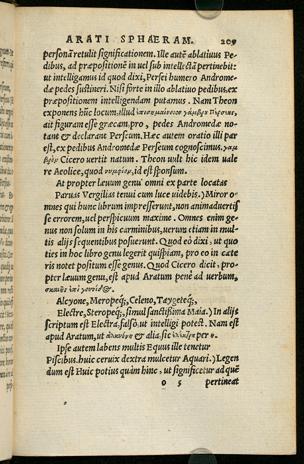 ARATI SPHAERAM. 209
personā retulit significationem. Ille autē ablatiuus Pe
dibus, ad præpositionē in uel sub intellectā pertinebit:
ut intelligamus id quod dixi, Persei humero Androme
dæ pedes sustineri. Nisi forte in illo ablatiuo pedibus, ex
præpositionem intelligendam putamus. Nam Theon
exponens hūc locum, illud
ait figuram esse græcam, pro, pedes Andromedæ no-
tant & declarant Perseum. Hæc autem oratio illi par
est, ex pedibus Andromedæ Perseum cognoscimus. γαμ
βρὸν Cicero uertit natum. Theon uult hic idem uale
re Aeolice, quod νυμφίον, id est sponsum.
At propter læuum genu' omni ex parte locatas
Paruas Vergilias tenui cum luce uidebis.) Miror o-
mnes qui hunc librum impresserunt, non animaduertis
se errorem, uel perspicuum maxime. Omnes enim ge-
nus non solum in his carminibus, uerum etiam in mul
tis alijs sequentibus posuerunt. Quod eò dixi, ut quo
ties in hoc libro genu legerit quispiam, pro eo in cæte
ris notet positum esse genus. Quod Cicero dicit, pro-
pter læuum genu, est apud Aratum penè ad uerbum,
Alcyone, Meropeq́;, Celeno, Taygeteq́;,
Electre, Steropeq́;, simul sanctissima Maia.) In alijs
scriptum est Electra. falsò, ut intelligi potest. Nam est
apud Aratum, ut ἀλκυόνη & alia, sic ἠλέκτρη per η.
Ipse autem labens multis Equus ille tenetur
Piscibus. huic ceruix dextra mulcetur Aquari.) Legen
dum est Huic potius quàm hinc, ut significetur ad quē
o 5 pertineat